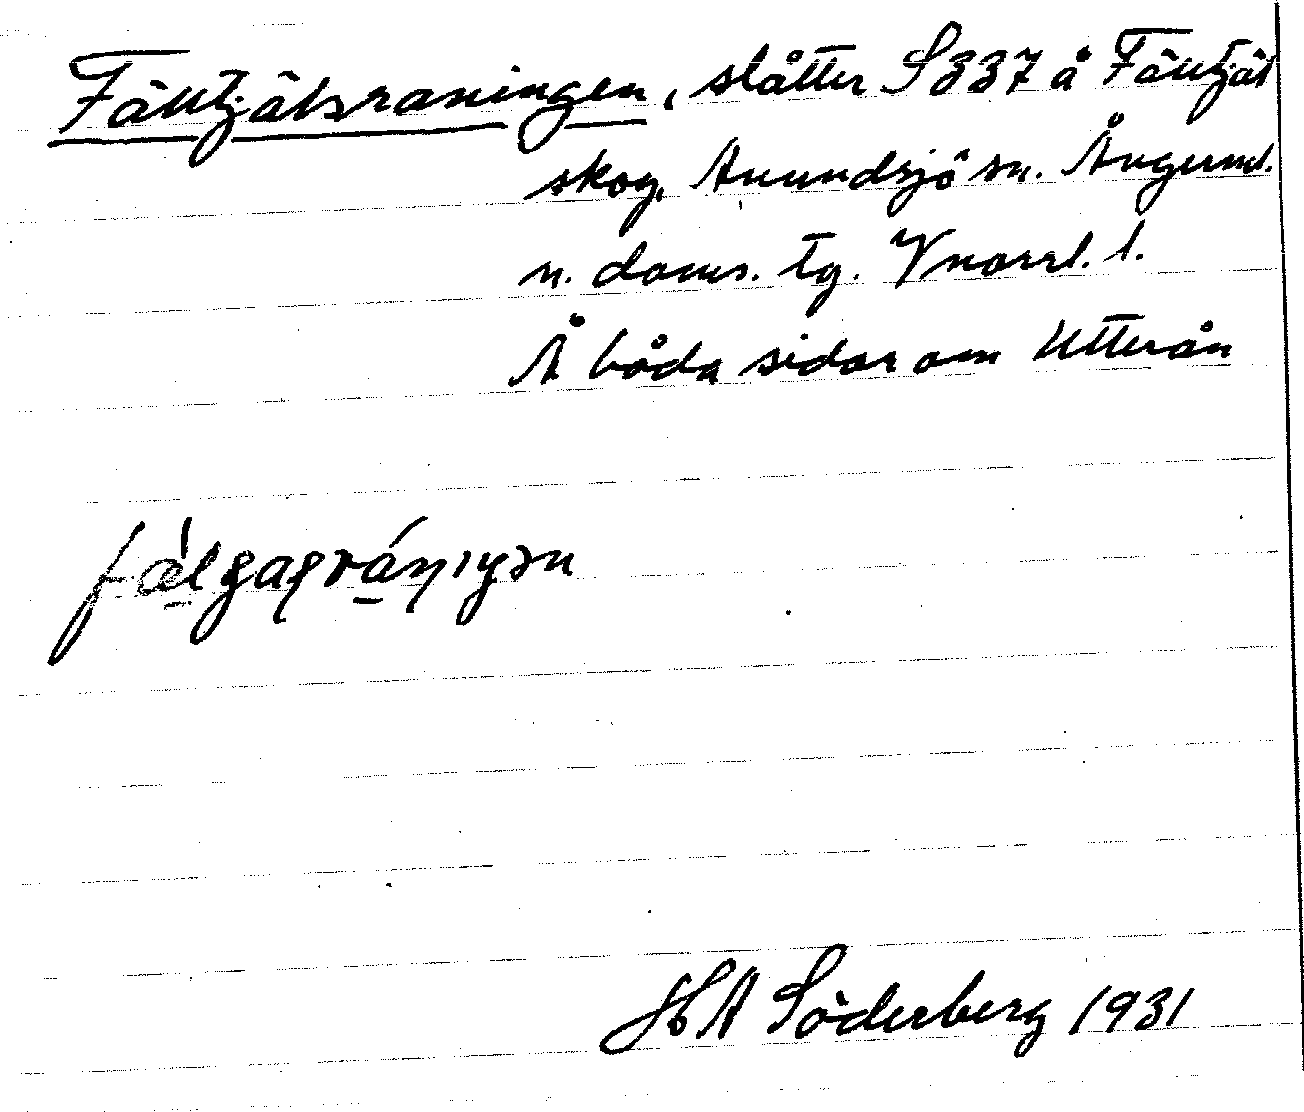 Fälltjälsraningen, slåtter S337 å Fälltjäl
skog, Anundsjö sn. Ångerml.
n. doms. tg. Vnorrl. l.
Å båda sidor om Utterån
H A Söderberg 1931